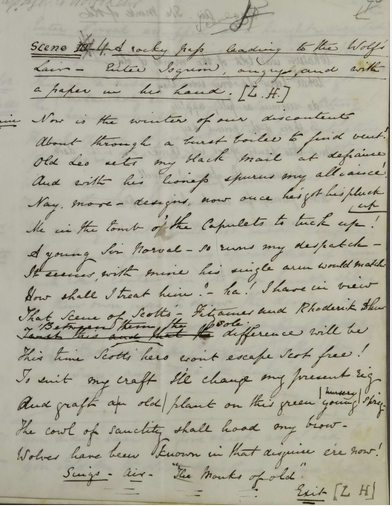 Scene 4 A rocky pass leading to the Wolf's
Lair - Enter Isegrim, angry, and with
a paper in his hand. [L.H.]
Now is the winter of our discontent
About through a burst boiler to find vent.
Old Leo sets my black mail at defiance
And with his lioness spurns my alliance!
Nay, more - designs, now once he's got his pluck
up
Me in the tomb of the Capulets to tuck up!
A young Sir Norval - so runs my despatch -
It seems, with mine his single arm would match
How shall I treat him? - ha! I have in view
That scene of Scott's - Fitzjames and Rhoderick Dhu
Between them the sole
difference will be
This time Scott's hero won't escape Scot free!
To suit my craft I'll change my present rig
And graft an old plant on this green young sprig
nursery
The cowl of sanctity shall hood my brow -
Wolves have been known in that disguise ere now!
Sings - Air - "The Monks of old"
Exit [L H]